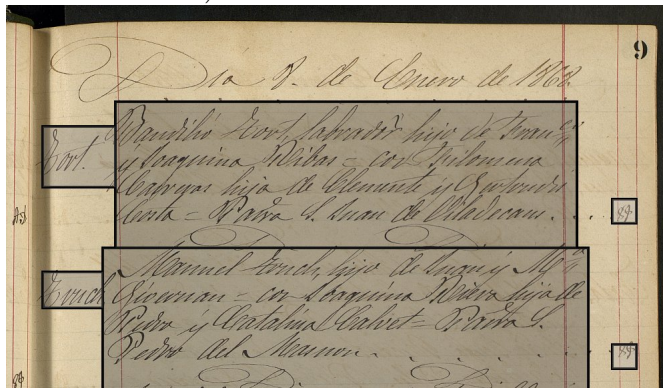 9
Dia 8. de Enero de 1868.
Tort.
Baudilio Tort, labrador hijo de Fran.co
y Joaquina Ribas = con Filomena
Cabreras hija de Clemente y Gertrudis
Costa = Parra. S. Juan de Viladecans. . . .
Manuel Fonch, hijo de Juan y M.a
Fonch
= con Joaquina Riera hija de
Pedro y Catalina Calvet = Parra. S.
Pedro del Masnou. . . . . .